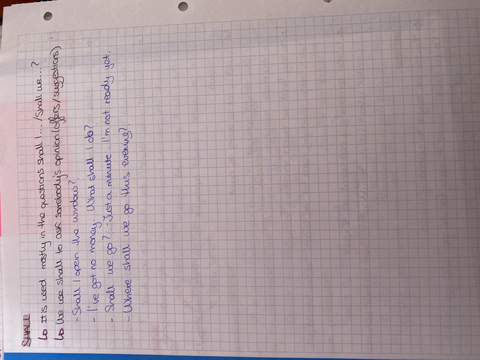 SHALL
↳ It is used mostly in the questions shall I.../shall we...?
↳ We use shall to ask somebody's opinion (offers/suggestions)
- Shall I open the window?
- I've got no money. What shall I do?
- Shall we go? - Just a minute. I'm not ready yet.
- Where shall we go this evening?